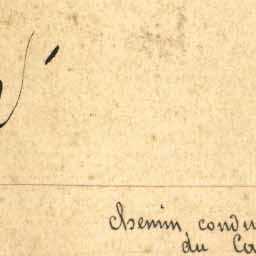 chemin condu
du Ca